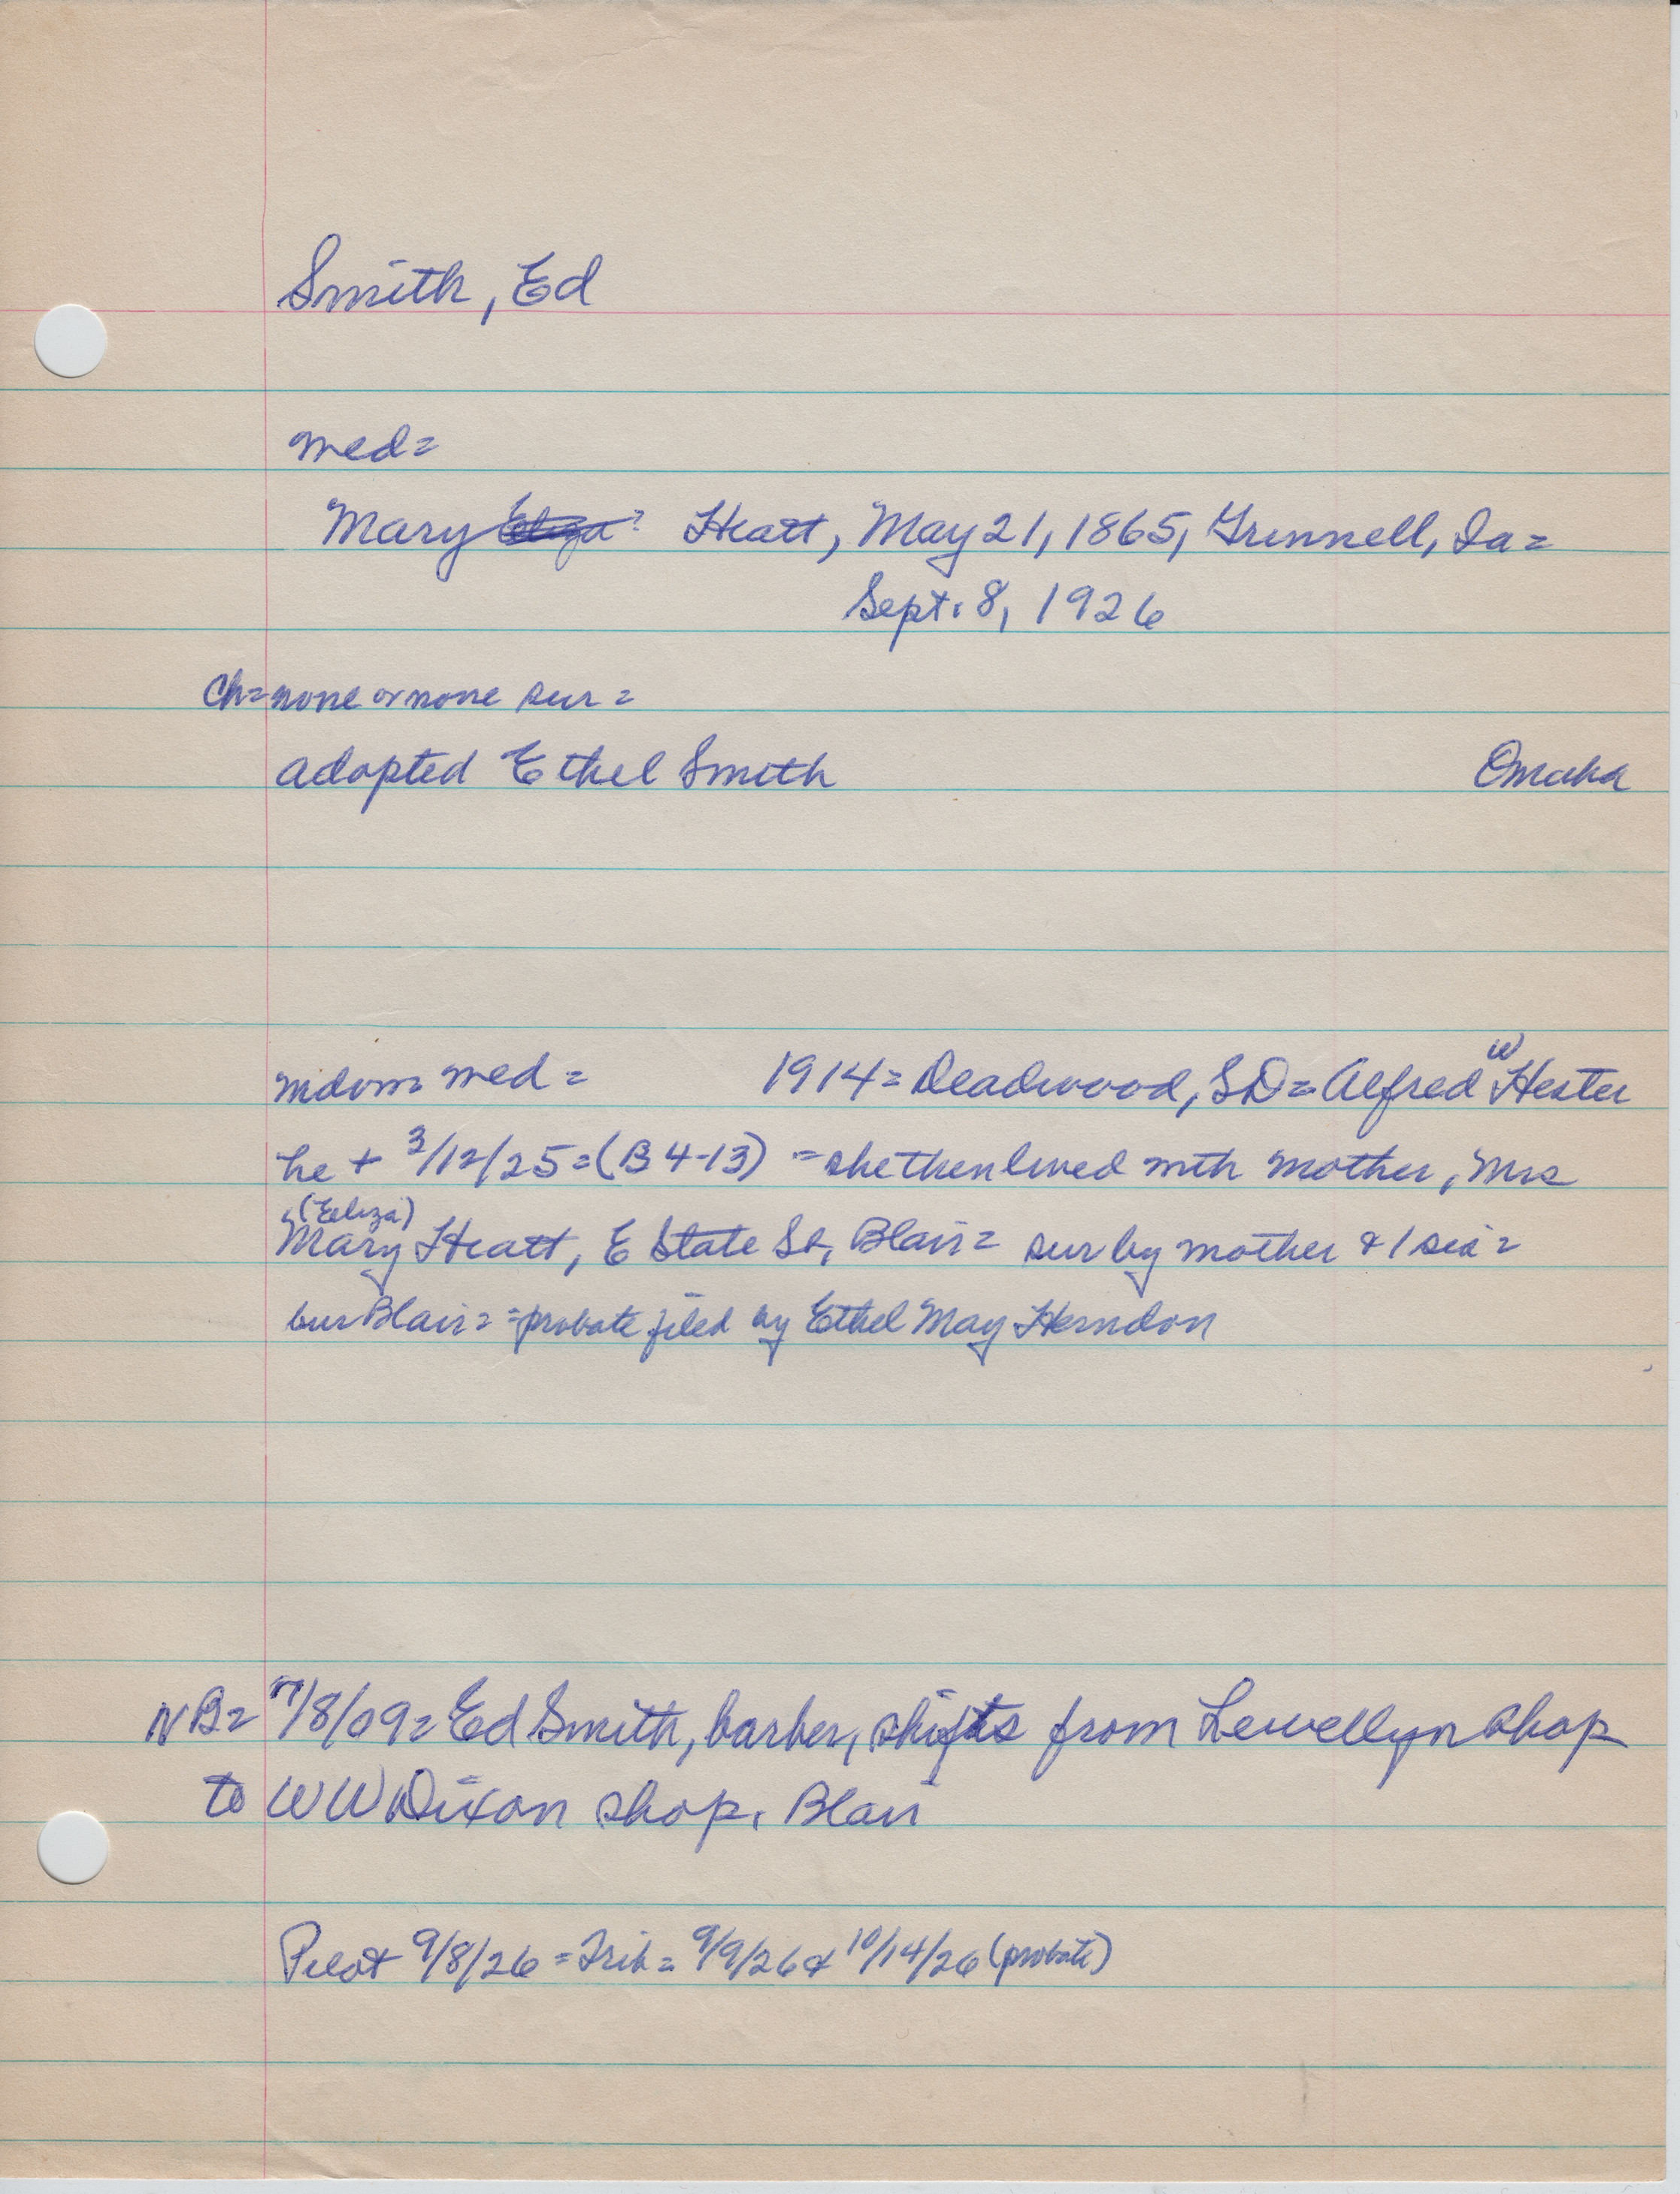 Smith, Ed
med=
Mary Eliza? Heatt, May 21, 1865, Grinnell, Ia=
Sept. 8, 1926
Ch= none or none sur=
adopted Ethel Smith Omaha
mdom med = 1914= Deadwood, SD= Alfred W Hester
he + 3/12/25=(B 4-13) = she then lived with mother, Mrs
(Eliza)
Mary Heatt, E State St, Blair= sur by mother & 1 sis=
bur Blair= =probate filed by Ethel May Herndon
NB= 7/8/09= Ed Smith, barber, shifts from Lewellyn shop
to WW Dixon shop, Blair
Pilot 9/8/26 = Trib= 9/9/26 & 10/14/26 (probate)